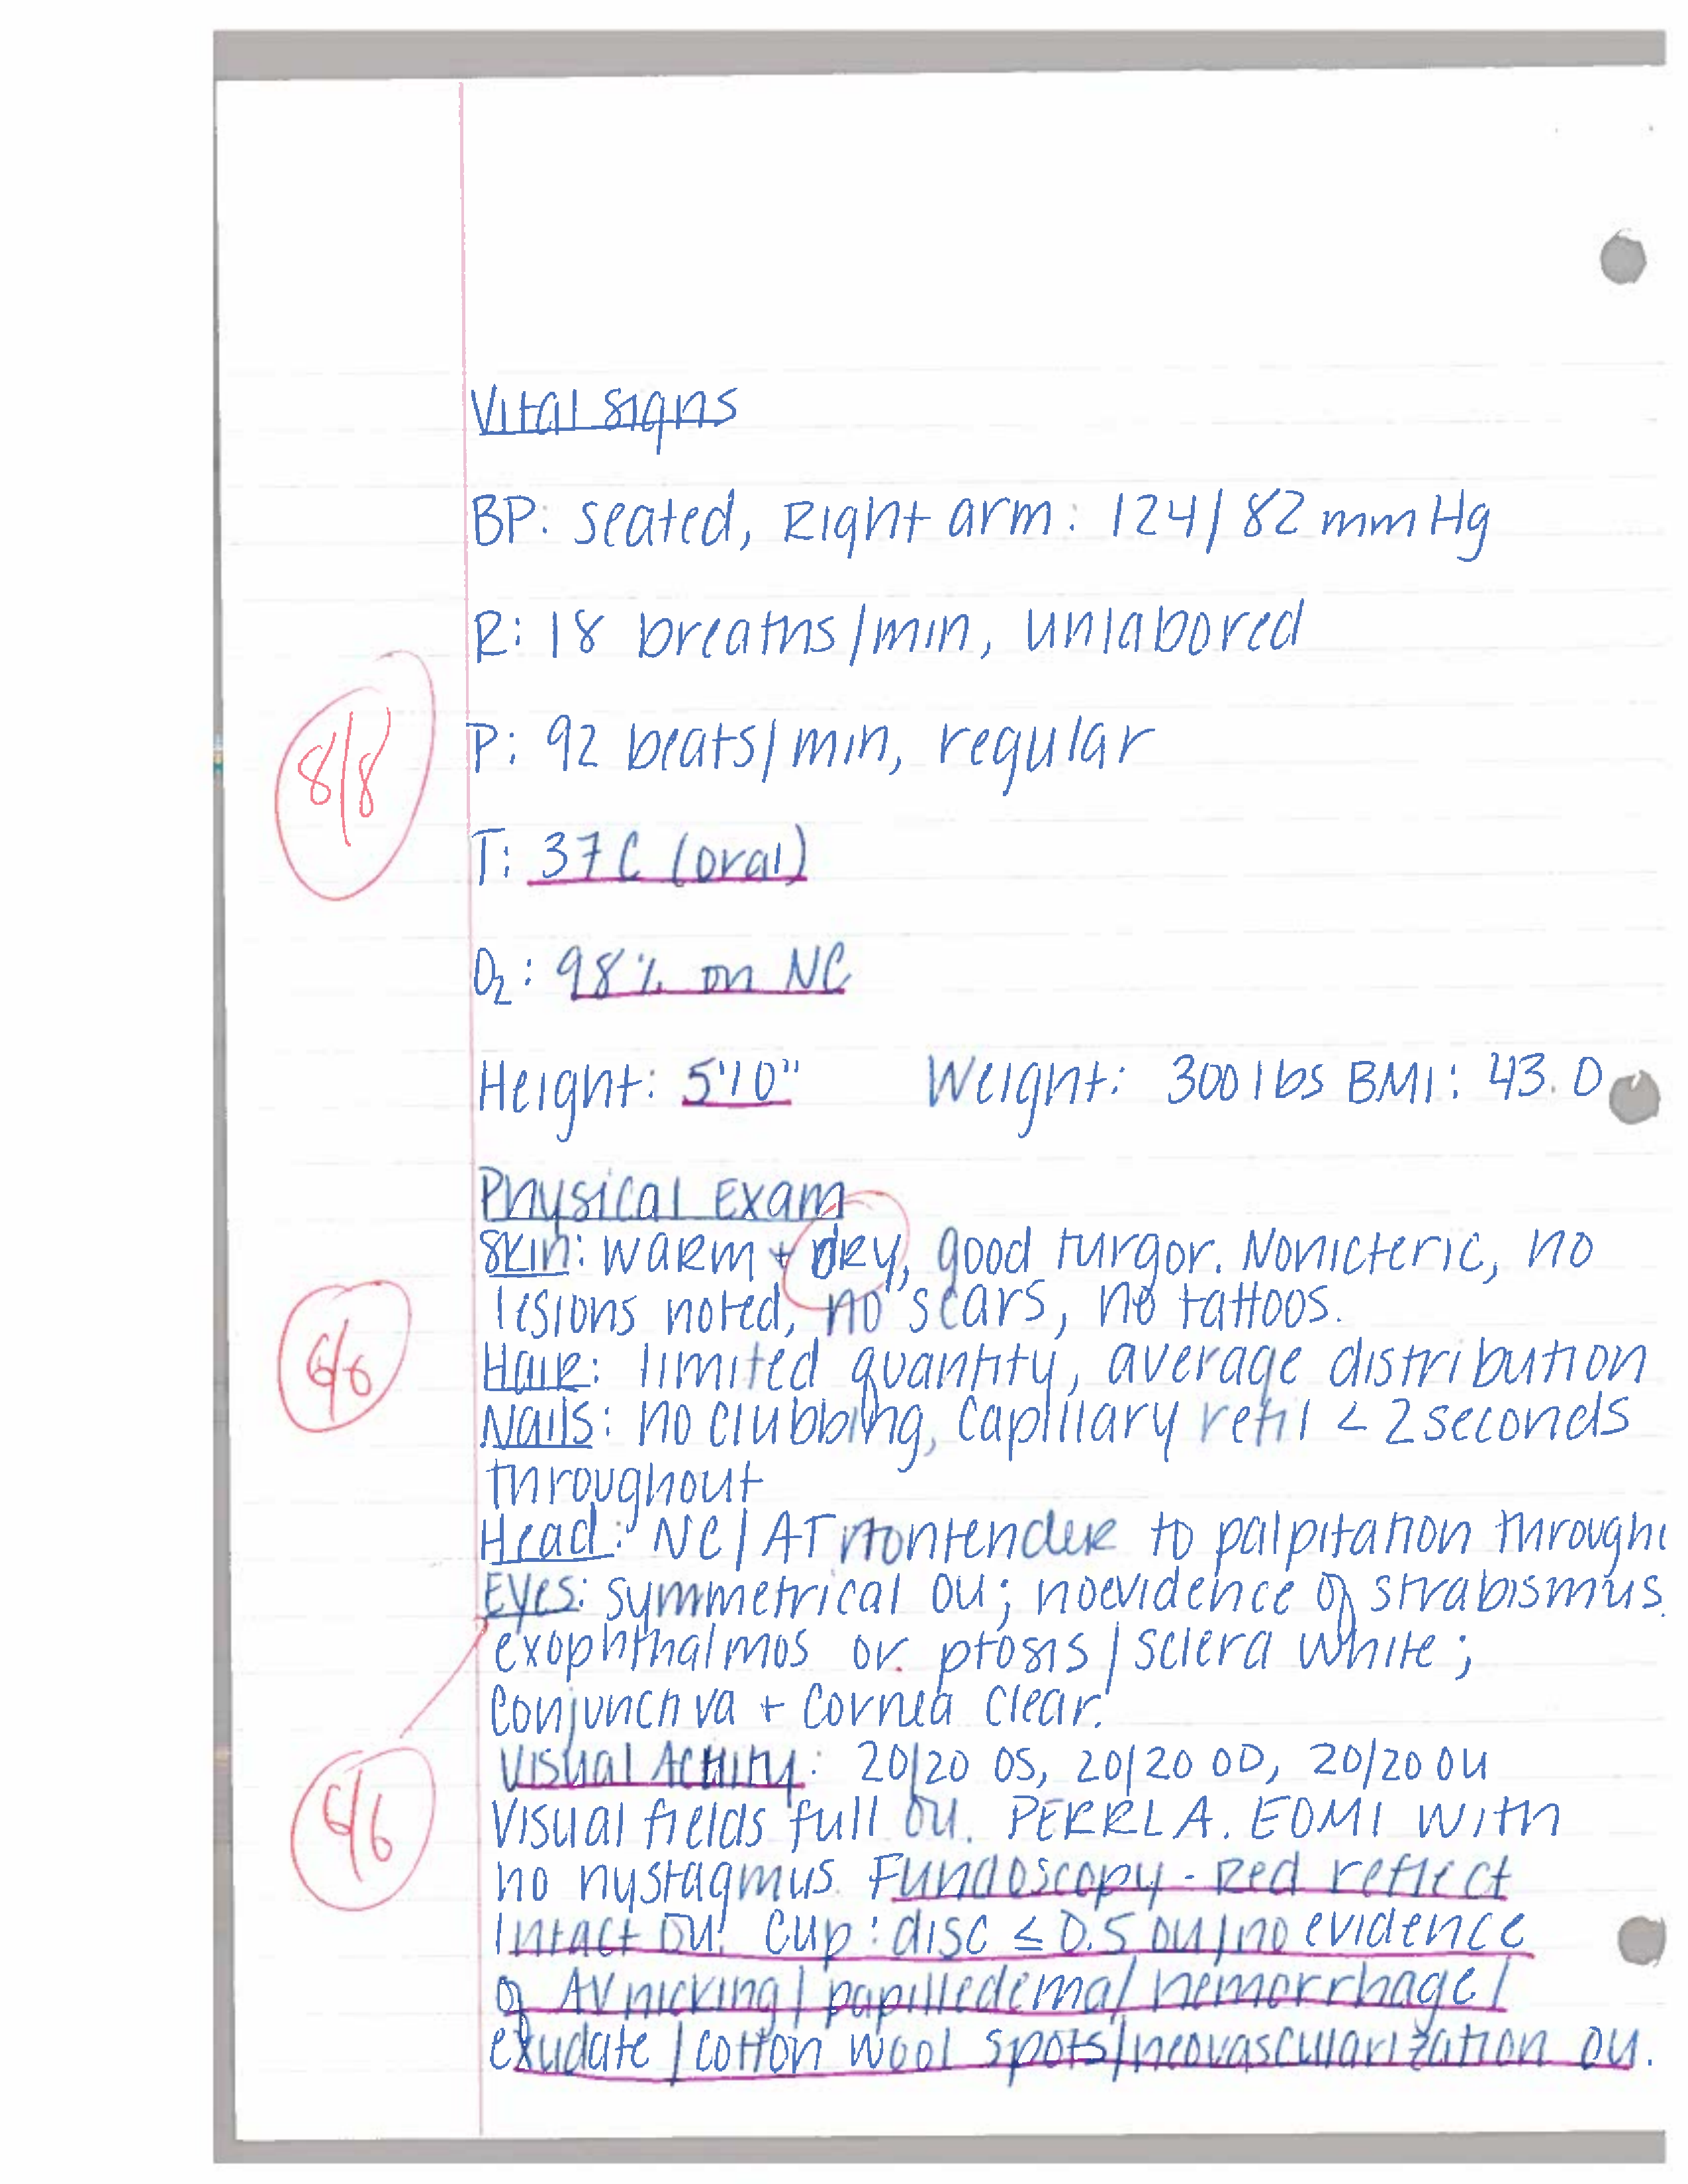 Vital signs
BP: seated, Right arm: 124/82 mmHg
R: 18 breaths/min, unlabored
8/8
P: 92 beats/min, regular
T: 37 C (oral)
O2: 98% on NC
Height: 5'10" Weight: 300 lbs BMI: 43.0
Physical Exam
Skin: warm + dry, good turgor. Nonicteric, no
lesions noted, no scars, no tattoos.
6/6
Hair: limited quantity, average distribution
Nails: no clubbing, capillary refil < 2 seconds
throughout
Head: NC/AT nontender to palpitation througho
Eyes: symmetrical OU; no evidence of strabismus
exophthalmos or ptosis/sclera white;
conjunctiva + cornea clear.
Visual Acuity: 20/20 OS, 20/20 OD, 20/20 OU
6/6
Visual fields full OU. PERRLA. EOMI with
no nystagmus. Fundoscopy - Red reflect
intact OU! Cup:disc ≤ 0.5 OU/no evidence
of AV nicking/papilledema/hemorrhage/
exudate/cotton wool spots/neovascularization OU.